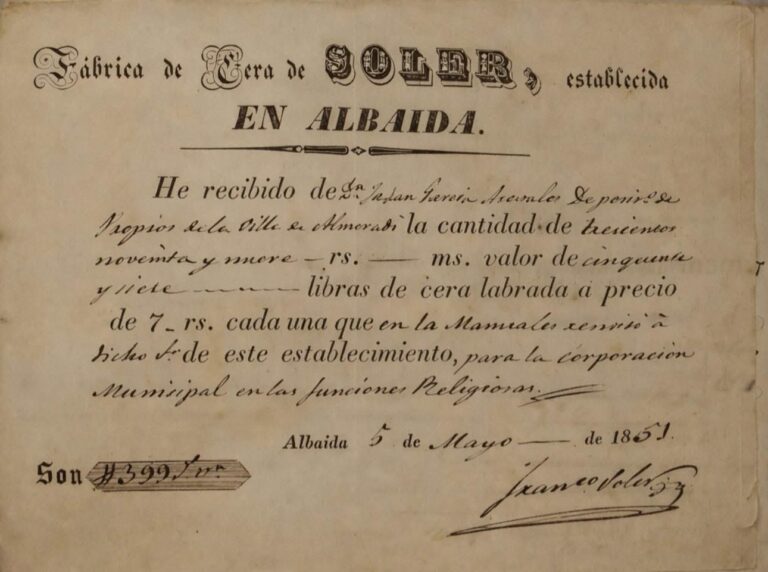 Fábrica de Cera de SOLER, establecida
EN ALBAIDA.
He recibido de Dn. Garcia Deposito. de
Propios de la Villa de Almoradi la cantidad de trescientos
noventa y nueve — rs. — ms. valor de cinquenta
y siete — libras de cera labrada a precio
de 7 — rs. cada una que en la Manuales remiso à
dicho Sr. de este establecimiento, para la corporacion
Munisipal en las funciones Religiosas.
Albaida 5 de Mayo — de 1851.
Son # 399 rs. vn
Franco Soler